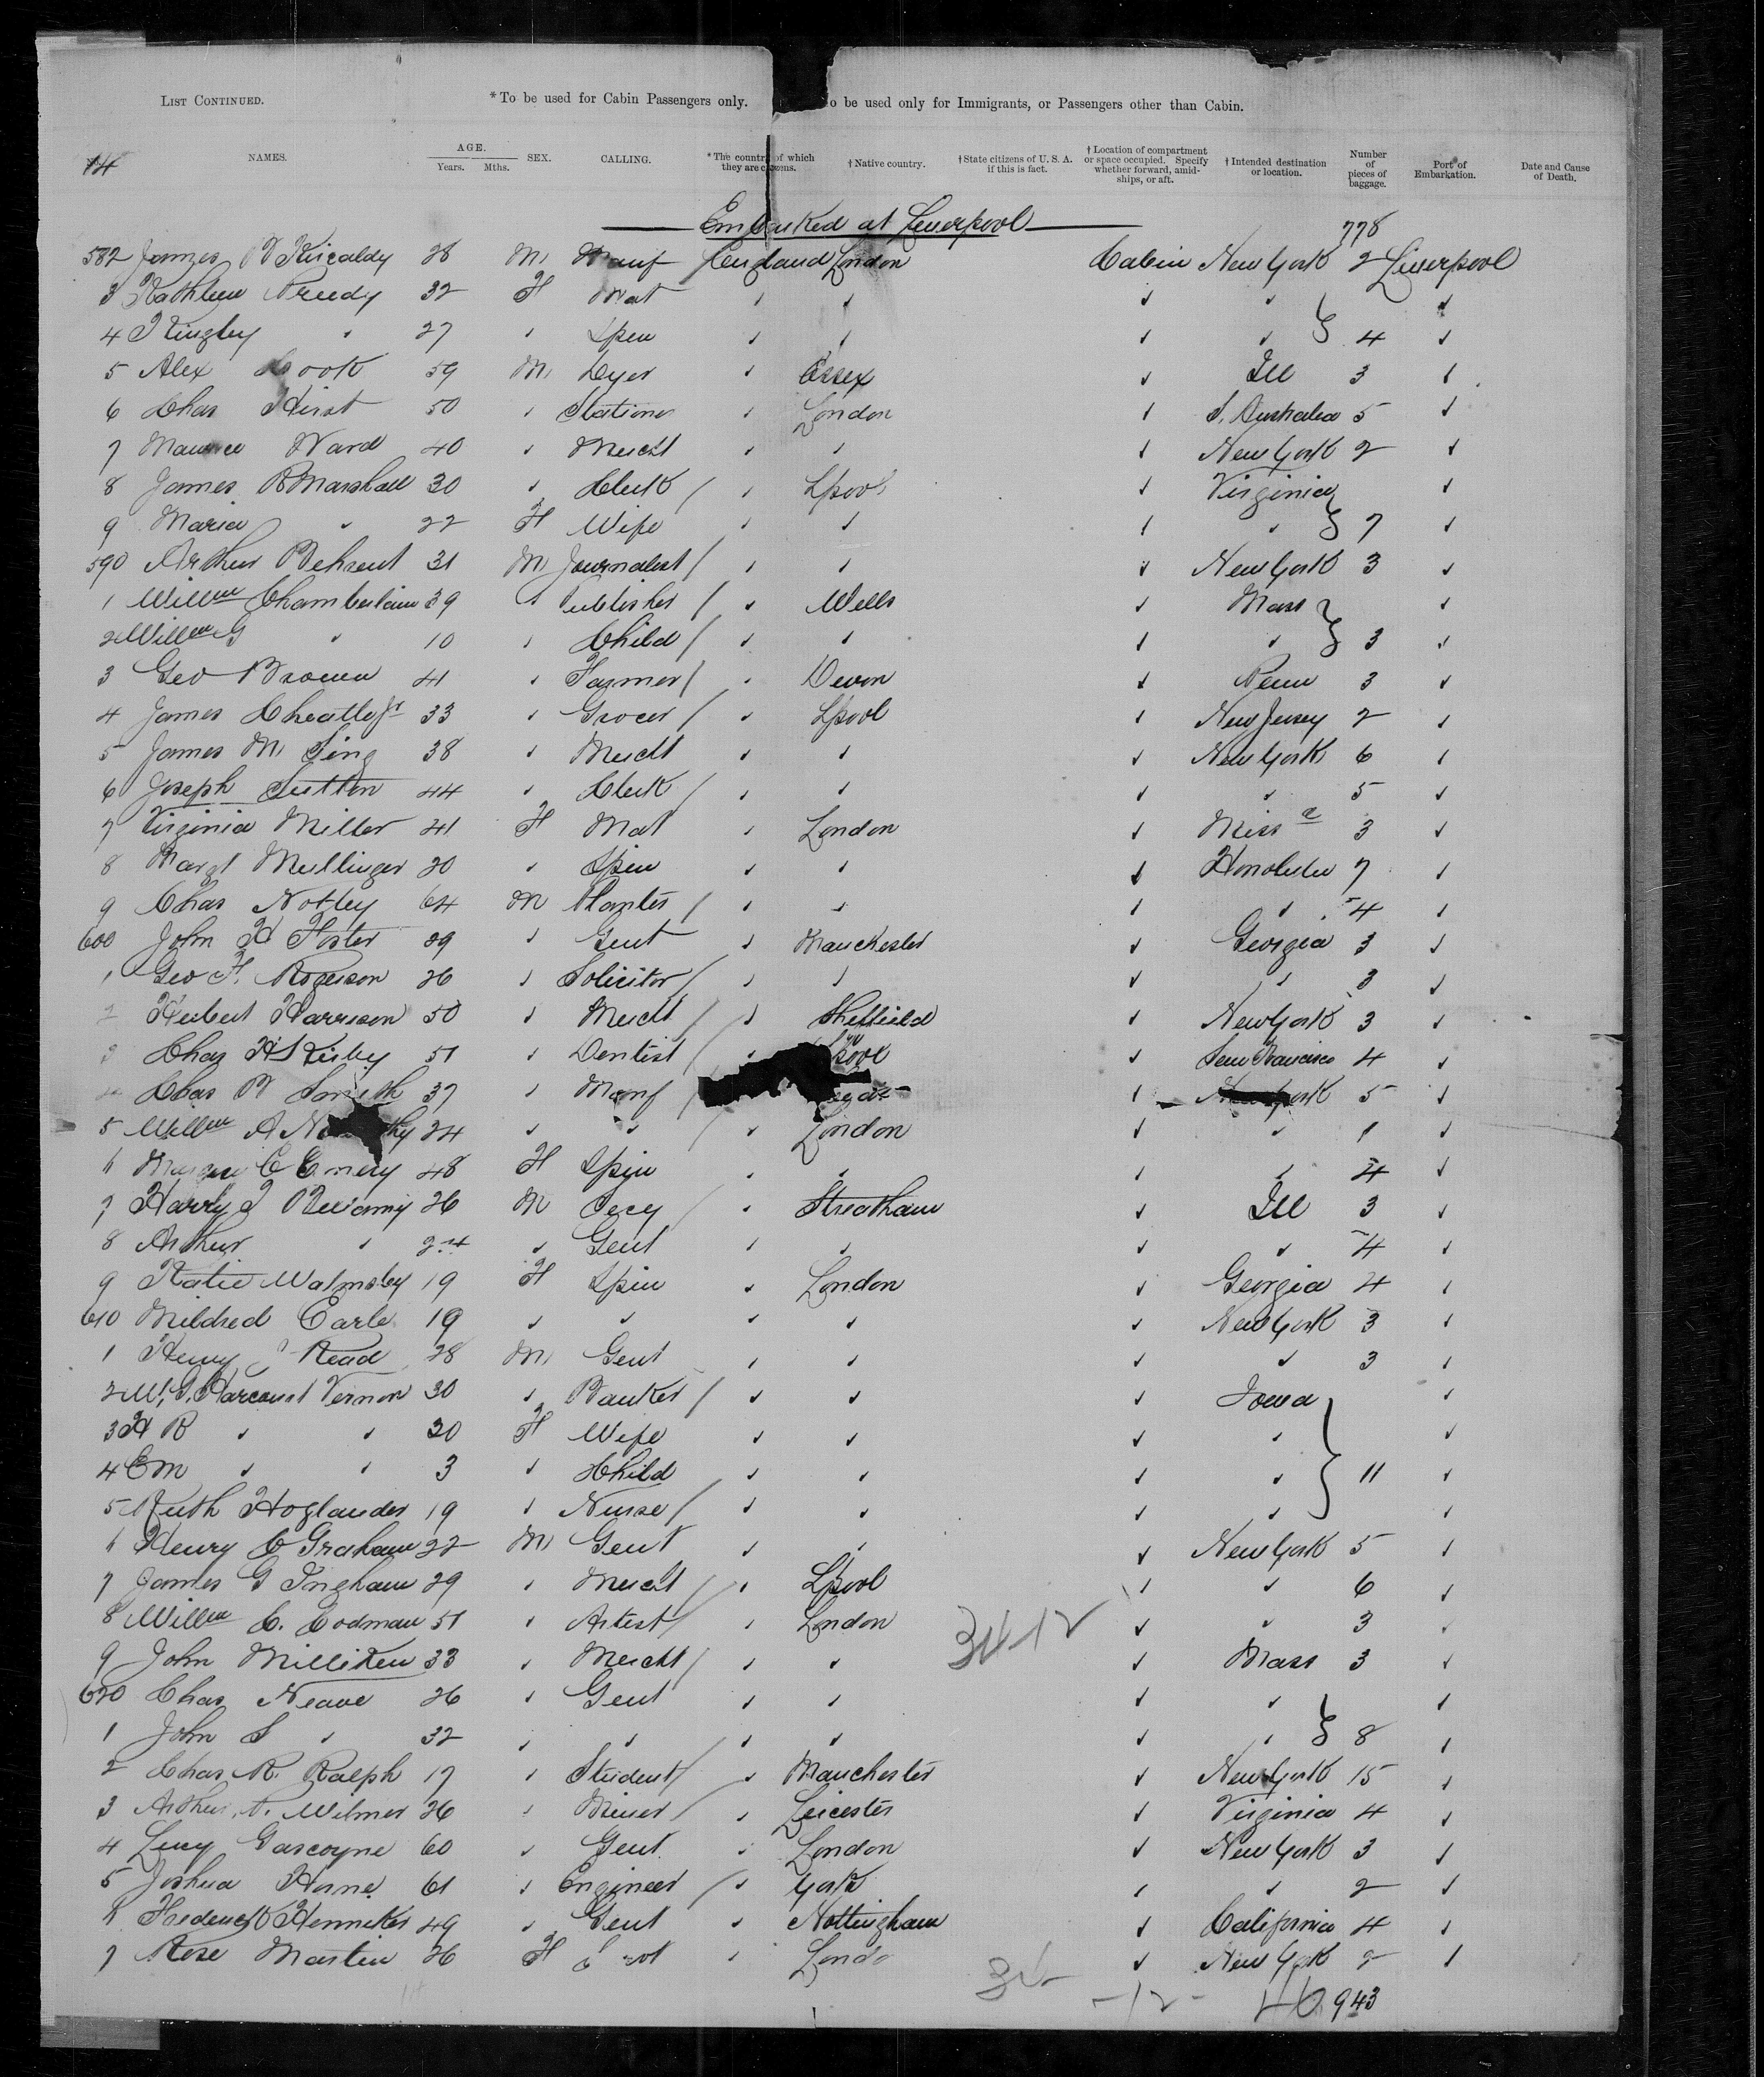 LIST CONTINUED. *To be used for Cabin Passengers only. o be used only for Immigrants, or Passengers other than Cabin.
14 NAMES. AGE. Years. Mths. SEX. CALLING. *The country of which they are citizens. †Native country. †State citizens of U. S. A. if this is fact. †Location of compartment or space occupied. Specify whether forward, amidships, or aft. †Intended destination or location. Number of pieces of baggage. Port of Embarkation. Date and Cause of Death.
Embarked at Liverpool 778
582 James Kincaldy 28 M Manf England London Cabin New York 2 Liverpool
3 Kathleen 32 F Mat ✓ ✓ ✓ ✓ ✓
4 Kingley ✓ 27 ✓ Spin ✓ ✓ ✓ ✓ 4 ✓
5 Alex Cook 59 M Dyer ✓ Essex ✓ Ill 3 ✓
6 Chas Hirst 50 ✓ Stationer ✓ London ✓ S. Australia 5 ✓
7 Maurice Ward 40 ✓ Mercht ✓ ✓ ✓ New York 2 ✓
8 James R Marshall 30 ✓ Clerk / ✓ Lpool ✓ Virginia ✓
9 Maria ✓ 22 F Wife ✓ ✓ ✓ ✓ 7 ✓
590 Arthur Behrent 31 M Journalist / ✓ ✓ ✓ New York 3 ✓
1 Willm Chamberlain 39 ✓ Publisher / ✓ Wells ✓ Mass ✓
2 Willm G ✓ 10 ✓ Child / ✓ ✓ ✓ ✓ 3 ✓
3 Geo Brown 41 ✓ Farmer / ✓ Devon ✓ Penn 3 ✓
4 James Cheatle Jr 33 ✓ Grocer / ✓ Lpool ✓ New Jersey 2 ✓
5 James M Sing 38 ✓ Mercht ✓ ✓ ✓ New York 6 ✓
6 Joseph Sutton 44 ✓ Clerk / ✓ ✓ ✓ ✓ 5 ✓
7 Virginia Miller 41 F Mat ✓ London ✓ Miss 3 ✓
8 Margt Mullinger 20 ✓ Spin ✓ ✓ ✓ Honolulu 7 ✓
9 Chas Notley 64 M Planter / ✓ ✓ ✓ ✓ 4 ✓
600 John H Foster 29 ✓ Gent ✓ Manchester ✓ Georgia 3 ✓
1 Geo F. Rogerson 26 ✓ Solicitor / ✓ ✓ ✓ ✓ 3 ✓
2 Herbert Harrison 50 ✓ Mercht / ✓ Sheffield ✓ New York 3 ✓
3 Chas H Kirby 51 ✓ Dentist / ✓ pool ✓ San Francisco 4 ✓
Chas Smith 37 ✓ Manf / ✓ ork 5 ✓
5 Willm A 24 ✓ ✓ / ✓ London ✓ ✓ 1 ✓
6 C Emery 48 F Spin ✓ ✓ ✓ ✓ 4 ✓
7 Harry 26 M / ✓ Streatham ✓ Ill 3 ✓
8 Arthur ✓ 24 ✓ Gent ✓ ✓ ✓ ✓ 4 ✓
9 Katie Walmsley 19 F Spin ✓ London ✓ Georgia 4 ✓
610 Mildred Earle 19 ✓ ✓ ✓ ✓ ✓ New York 3 ✓
1 Henry J Read 28 M Gent ✓ ✓ ✓ ✓ 3 ✓
2 W. G. Harcourt Vernon 30 ✓ Banker / ✓ ✓ ✓ Iowa ✓
3 H R ✓ ✓ 30 F Wife ✓ ✓ ✓ ✓ ✓
4 E M ✓ ✓ 3 ✓ Child ✓ ✓ ✓ ✓ 11 ✓
5 Ruth Hoglander 19 ✓ Nurse / ✓ ✓ ✓ ✓ ✓
6 Henry C Graham 22 M Gent ✓ ✓ ✓ New York 5 ✓
7 James G Ingham 29 ✓ Mercht / ✓ Lpool ✓ ✓ 6 ✓
8 Willm C. Codman 51 ✓ Artist / ✓ London 34-12 ✓ ✓ 3 ✓
9 John Milliken 33 ✓ Mercht / ✓ ✓ ✓ Mass 3 ✓
620 Chas Neave 26 ✓ Gent ✓ ✓ ✓ ✓ ✓
1 John S ✓ 32 ✓ ✓ ✓ ✓ ✓ ✓ 8 ✓
2 Chas R. Ralph 17 ✓ Student / ✓ Manchester ✓ New York 15 ✓
3 Arthur Wilmer 26 ✓ Miner / ✓ Leicester ✓ Virginia 4 ✓
4 Lucy Gascoyne 60 ✓ Gent ✓ London ✓ New York 3 ✓
5 Joshua Horne 61 ✓ Engineer / ✓ York ✓ ✓ 2 ✓
6 Frederick Henniker 49 ✓ Gent ✓ Nottingham ✓ California 4 ✓
7 Rose Martin 26 F ✓ Londo ✓ New York 2 ✓
34 -12- 46 943